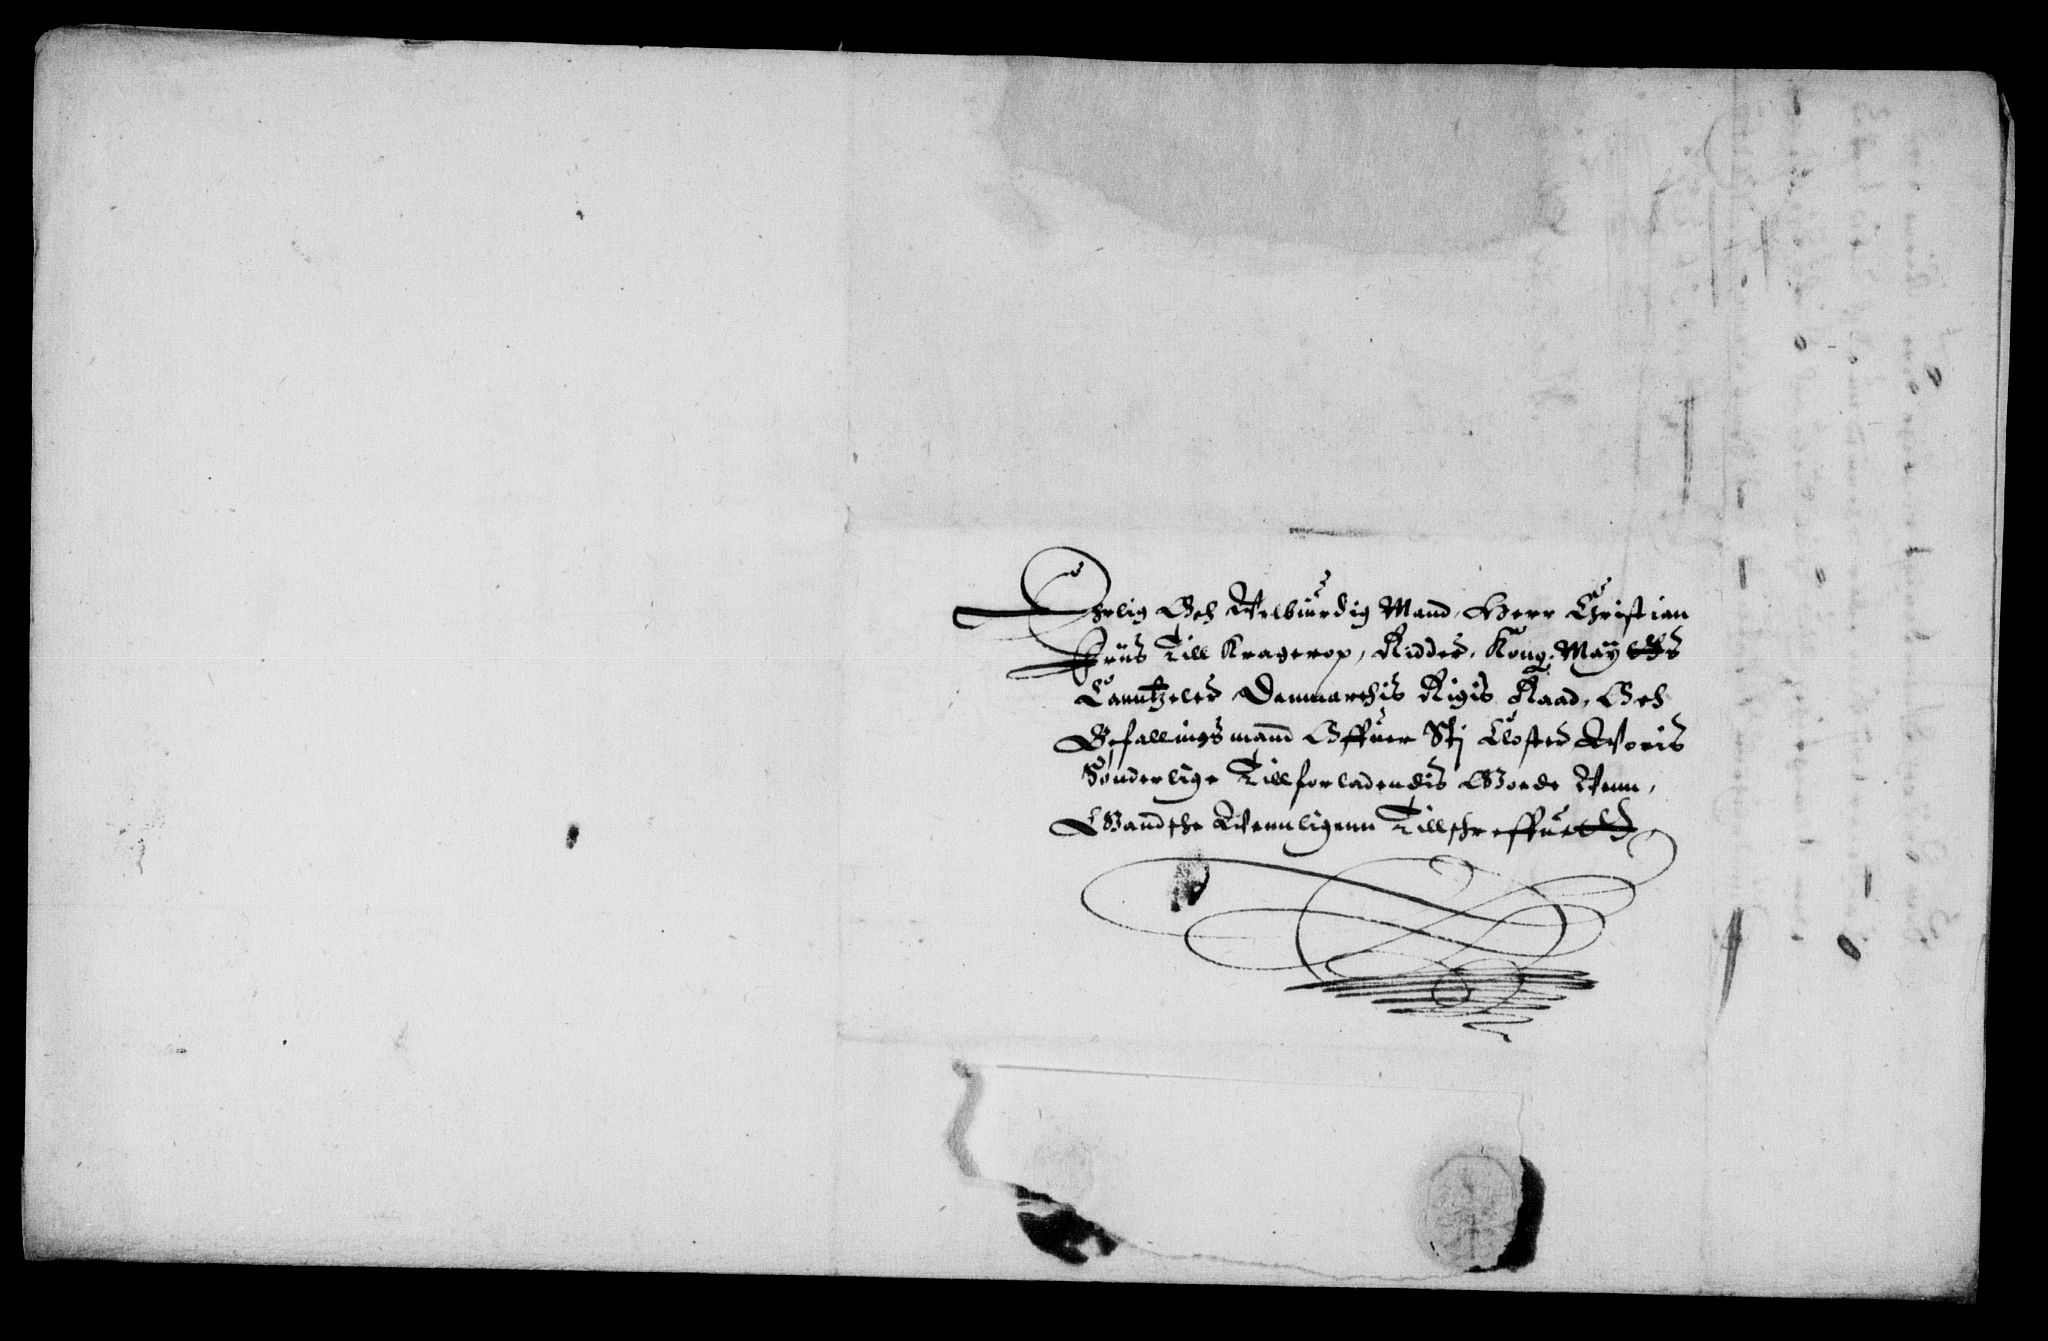 Ehrlig Och Welbiurdig Mand, Herr Christian
Friis Till Kragerop, Ridder, Kong: Maytts
Canntzeler Danmarchis Rigis Raad, Och
Befallingsmand Offuer Stj Closter Woris
Sønderlige Tillforladendis Goede Wenn,
Gandsche Wennligenn Tillschreffuett